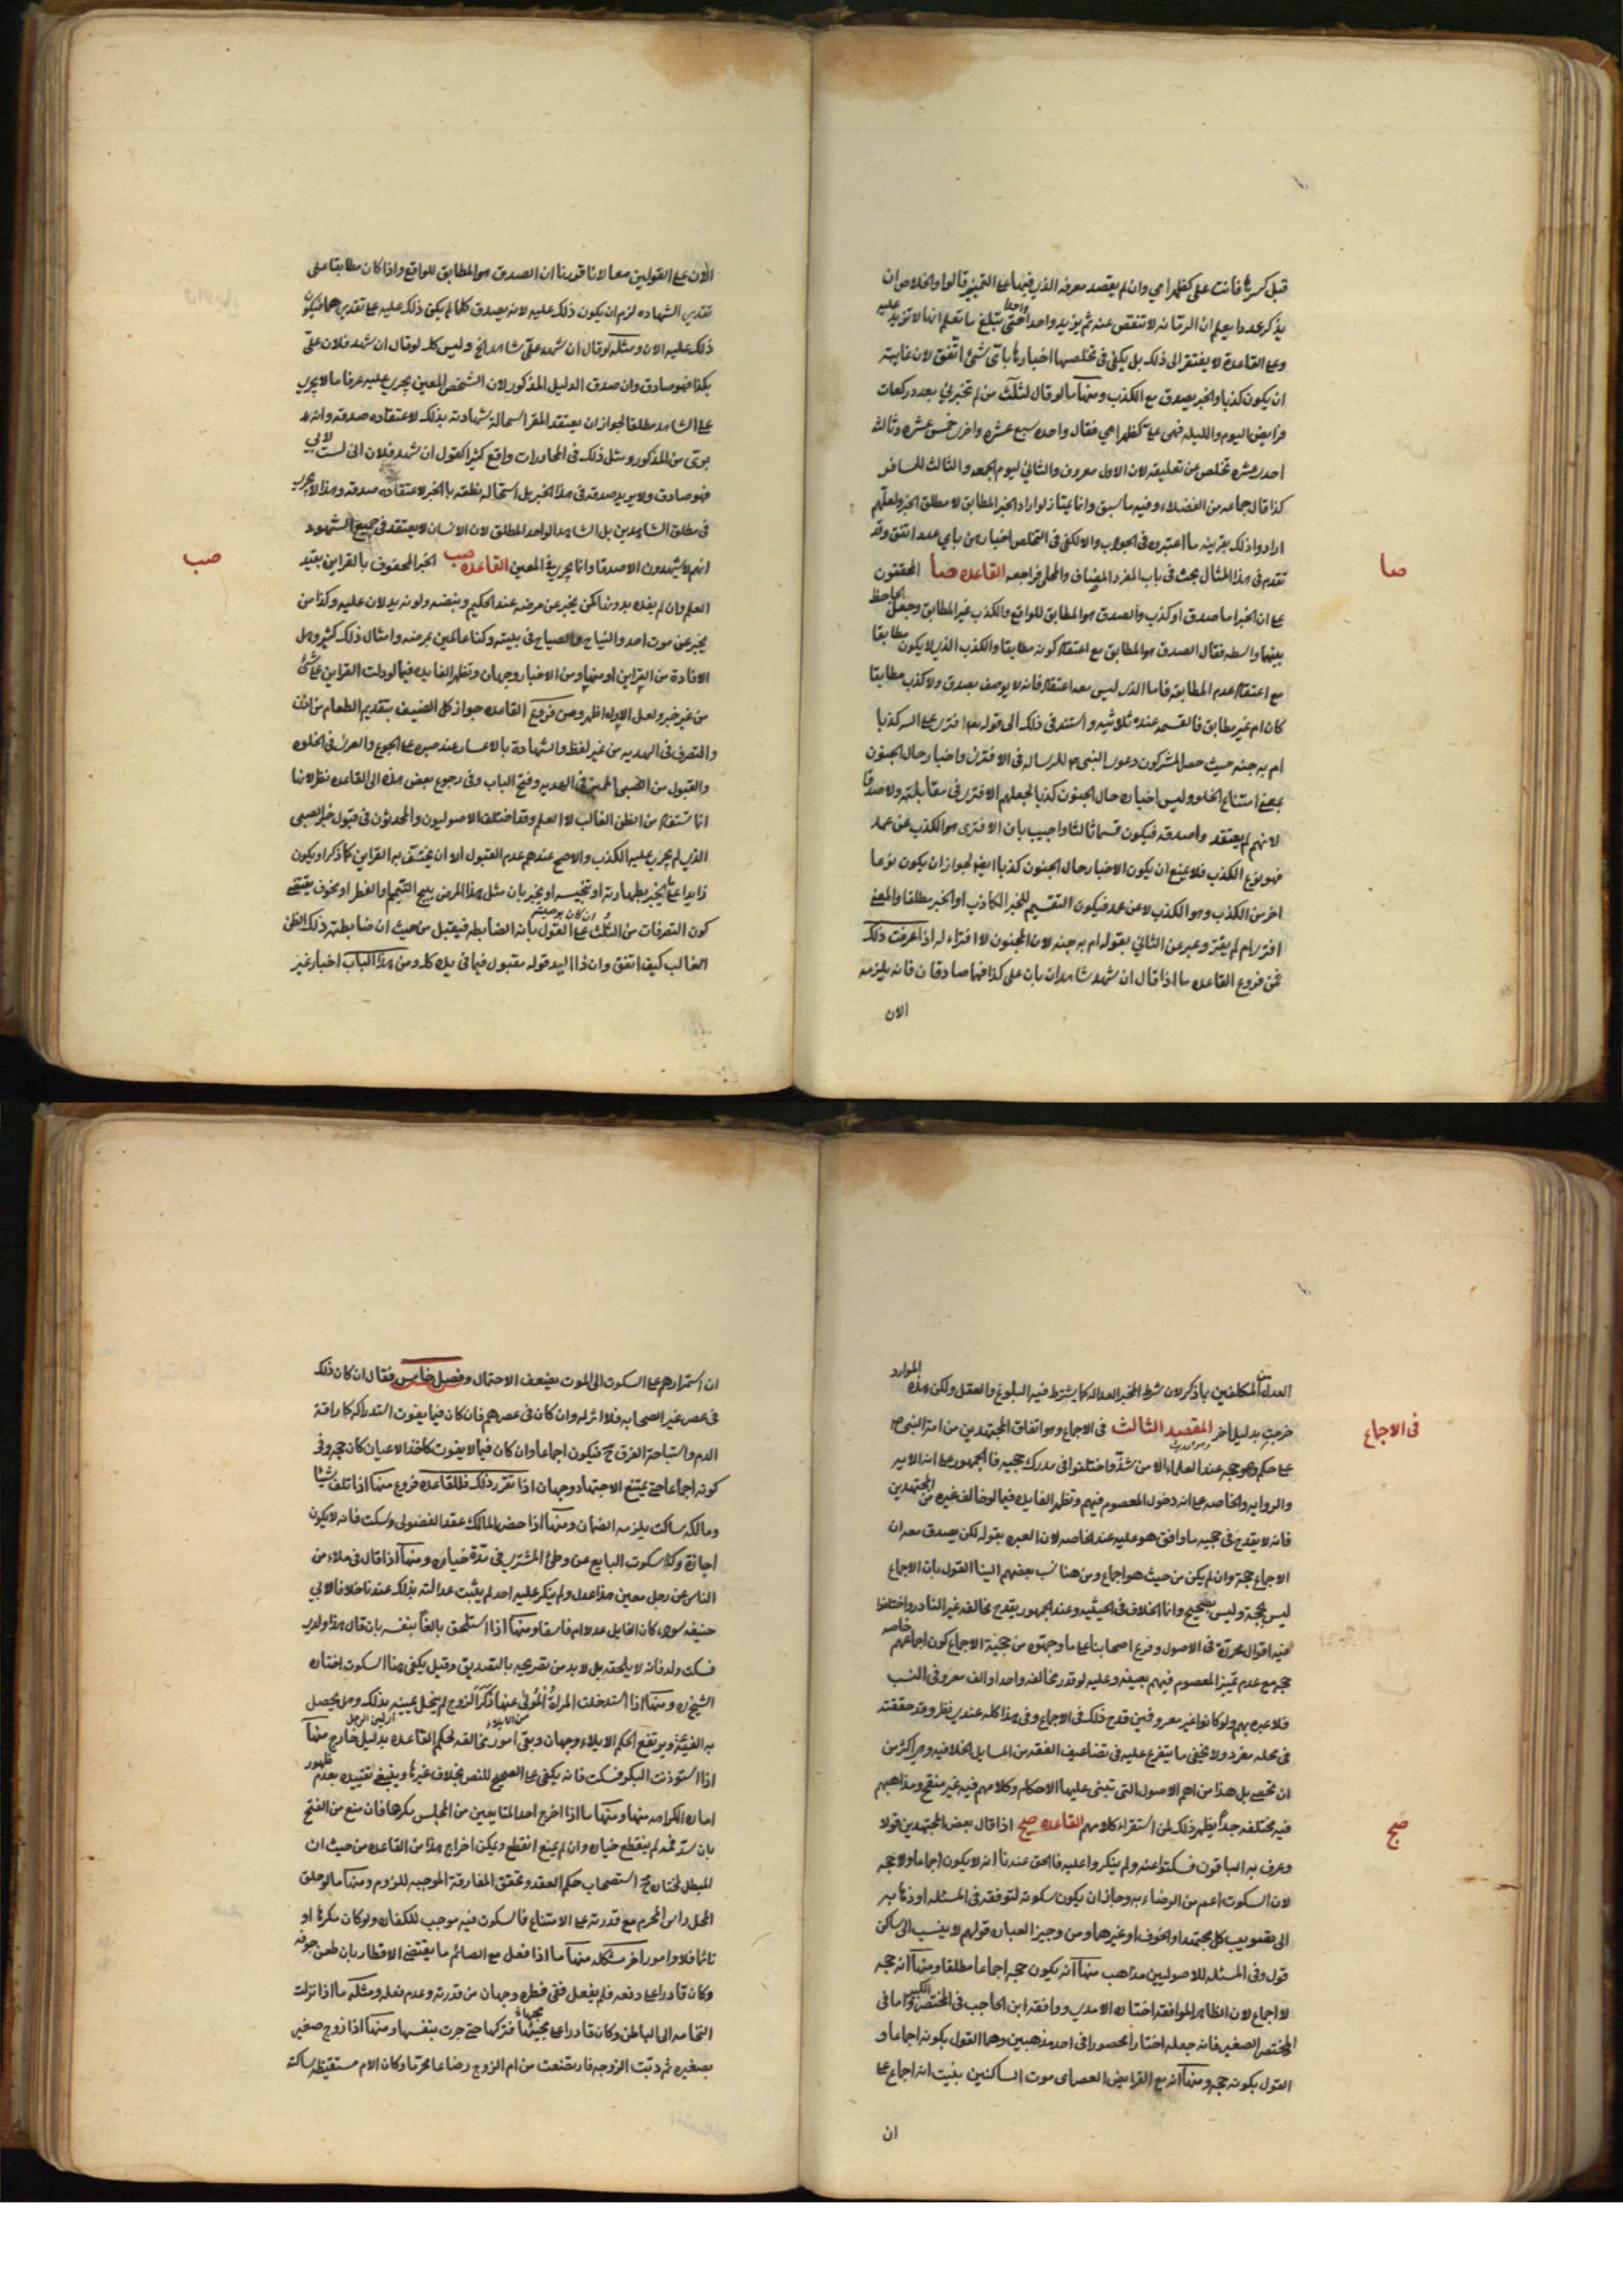 قبل كسرها فأنت علي كظهر امي وان لم يقصد معرفة الذي فيها على التمييز قالوا والخلاص ان
يذكر عددا يعلم ان الرمانة لا تنقص عنه ثم يزيد واحدا واحدا حتى يبلغ ما يعلم انها لا تزيد عليه
وعلى القاعدة لا يفتقر الى ذلك بل يكفى فى تخلصها اخبارها باى شئ اتفق لان غايته
ان يكون كذبا والخبر يصدق مع الكذب ومنها ما لو قال لثلث من لم تخبرني بعدد ركعات
فرايض اليوم والليله فهى علي كظهر امي فقال واحده سبع عشره واخرى خمس عشره وثالثه
احدى عشره تخلص من تعليقه لان الاول معروف والثاني ليوم الجمعه والثالث للمسافر
كذا قال جماعه من الفضلاء وفيه ما سبق وانما يمتاز لو اراد الخبر المطابق لا مطلق الخبر ولعلهم
ارادوا ذلك بقرينه ما اعتبروه فى الجواب والا لكفى فى التخلص اخبارهن باي عدد اتفق وقد
تقدم فى هذا المثال بحث فى باب المفرد المضاف والمحلى فراجعه القاعده صا المحققون
صا
على ان الخبر اما صدق او كذب والصدق هو المطابق للواقع والكذب غير المطابق وجعل الجاحظ
بينهما واسطه فقال الصدق هو المطابق مع اعتقاد كونه مطابقا والكذب الذى لا يكون مطابقا
مع اعتقاد عدم المطابقه فاما الذى ليس معه اعتقاد فانه لا يوصف بصدق ولا كذب مطابقا
كان ام غير مطابق فالقسمه عنده ثلاثيه واستند فى ذلك الى قوله تعه افترى على الله كذبا
ام به جنه حيث حصر المشركون دعوى النبى ص للرساله فى الافترى واخبار حال الجنون
بمعنى امتناع الخلو وليس اخباره حال الجنون كذبا لجعلهم الافترى فى مقابلته ولا صدقا
لانهم لم يعتقدوا صدقه فيكون قسما ثالثا واجيب بان الافترى هو الكذب عن عمد
فهو نوع الكذب فلا يمنع ان يكون الاخبار حال الجنون كذبا ايضا لجواز ان يكون نوعا
اخر من الكذب وهو الكذب لا عن عمد فيكون التقسيم للخبر الكاذب او الخبر مطلقا والمعنى
افترى ام لم يفتر وعبر عن الثاني بقوله ام به جنه لان المجنون لا افتراء له اذا عرفت ذلك
فمن فروع القاعده ما اذا قال ان شهد شاهدان بان علي كذا فهما صادقان فانه يلزمه
الان
الآن على القولين معا لانا قررنا ان الصدق هو المطابق للواقع واذا كان مطابقا على
تقدير الشهاده لزم ان يكون ذلك عليه لانه يصدق كلما لم يكن ذلك عليه على تقدير هما فيكون
ذلك عليه الان ومثله لو قال ان شهد علي شاهد الخ وليس كك لو قال ان شهد فلان على
بكذا فهو صادق وان صدق الدليل المذكور لان الشخص المعين يجرى عليه عرفا ما لا يجرى
على الشاهد مطلقا لجواز ان يعتقد المقر استحالة شهادته بذلك لاعتقاده صدقه وانه
برئ من المذكور ومثل ذلك فى المحاورات واقع كثيرا كقول ان شهد فلان انى لست لابي
فهو صادق ولا يريد صدقه فى هذا الخبر بل استحالة نطقه بالخبر لاعتقاده صدقه وهذا لا يجرى
فى مطلق الشاهدين بل الشاهد الواحد المطلق لان الانسان لا يعتقد فى جميع الشهود
انهم لا يشهدون الا صدقا وانما يجرى فى المعين القاعده صب الخبر المحفوف بالقراين يفيد
صب
العلم وان لم يفده بدونها كمن يخبر عن مرضه عند الحكيم ونبضه ولونه يدلان عليه وكذا من
يخبر عن موت احد والنياح والصياح فى بيته وكنا عالمين بمرضه وامثال ذلك كثير وهل
الافادة من القراين او منها ومن الاخبار وجهان وتظهر الفايده فيما لو دلت القراين على شئ
من غير خبر ولعل الاول اظهر ومن فروع القاعده جواز اكل الضيف بتقديم الطعام من اذن
والتصرف فى الهديه من غير لفظ والشهادة بالاعسار عند صبره على الجوع والعرى فى الخلوه
والقبول من الصبى المميز فى الهديه وفتح الباب وفى رجوع بعض هذه الى القاعده نظر لانها
انما تستفاد من الظن الغالب لا العلم وقد اختلف الاصوليون والمحدثون فى قبول خبر الصبى
الذى لم يجرب عليه الكذب والاصح عندهم عدم القبول الا ان يحتف به القراين كما ذكر او يكون
زايدا على الخبر بطهارته او تنجيسه او يخبر بان مثل هذا المرض يبيح التيمم او الفطر او مخوف يقتضى
كون التصرفات من الثلث على القول بانه الضابطه ان كان بوصيته فيقبل من حيث ان ضابطته ذلك الظن
الغالب كيف اتفق وان ذا اليد قوله مقبول فيما فى يده كله ومن هذا الباب اخبار غير
العدل من المكلفين بما ذكر لان شرط المخبر العداله كما يشترط فيه البلوغ والعقل ولكن هذه الموارد
خرجت بدليل اخر المقصد الثالث فى الاجماع وهو اتفاق المجتهدين من امة النبي ص
فى الاجماع
على حكم وهو حجه عند العلماء الا من شذ واختلفوا فى مدرك حجيه فالجمهور على انه الايه
والروايه والخاصه على انه دخول المعصوم فيهم وتظهر الفايده فيما لو خالف غيره من المجتهدين
فانه لا يقدح فى حجيه ما وافق هو عليه عند الخاصه لان العبره بقوله لكن يصدق معه ان
الاجماع حجة وان لم يكن من حيث هو اجماع ومن هنا نسب بعضهم الينا القول بان الاجماع
ليس بحجة وليس بصحيح وانما الخلاف فى الحيثيه وعند الجمهور يقدح مخالفه غير النادر واختلفوا
فيه اقوال محررة فى الاصول وفرع اصحابنا على ما وجهوه من حجية الاجماع كون اجماعهم خاصه
حجه مع عدم تمييز المعصوم فيهم بعينه وعليه لو قدر مخالفه واحد او الف معروفى النسب
فلا عبره بهم ولو كانوا غير معروفين قدح ذلك فى الاجماع وفى هذا كله عندى نظر وقد حققته
فى محله مفرد ولا يخفى ما يتفرع عليه فى تضاعيف الفقه من المسايل الخلافيه وهى اكثر من
ان تحصى بل هذا من اهم الاصول التى تبنى عليها الاحكام وكلامهم فيه غير منقح ومذاهبهم
فيه مختلفه جداً يظهر ذلك لمن استقراء كلامهم القاعده صج اذا قال بعض المجتهدين قولا
صج
وعرف به الباقون فسكتوا عنه ولم ينكروا عليه فالحق عندنا انه لا يكون اجماعا ولا حجه
لان السكوت اعم من الرضاء به وجاز ان يكون سكوته لتوقفه فى المسئله او ذهابه
الى تصويب كل مجتهد او الخوف او غيرها ومن وجيز العباره قولهم لا ينسب الى ساكت
قول وفى المسئله للاصوليين مذاهب منها انه يكون حجه اجماعا مطلقا ومنها انه حجه
لا اجماع لان الظاهر الموافقه اختاره الامدى ووافقه ابن الحاجب فى المختصر الكبير واما فى
المختصر الصغير فانه جعله اختار الحصور فى احد مذهبين وهما القول بكونه اجماعا و
القول بكونه حجه ومنها انه مع انقراض العصر اى موت الساكتين يثبت انه اجماع على
ان
ان استمرارهم على السكوت الى الموت يضعف الاحتمال وفصل خامس فقال ان كان ذلك
فى عصر غير الصحابه فلا اثر له وان كان فى عصرهم فان كان فيما يفوت استدراكه كاراقة
الدم واستباحة الفرق ح فيكون اجماعا وان كان فيما لا يفوت كاخذ الاعيان كان حجه وفى
كونه اجماعا حتى يمتنع الاجتهاد وجهان اذا تقرر ذلك فللقاعده فروع منها اذا تلف شيئا
ومالكه ساكت يلزمه الضمان ومنها اذا حضر المالك عقد الفضولى وسكت فانه لا يكون
اجازة وكذا سكوت البايع عن وطئ المشترى فى مدة خياره ومنها اذا قال فى ملاء من
الناس عن رجل معين هذا عدل ولم ينكر عليه احد لم يثبت عدالته بذلك عندنا خلافا لابي
حنيفه سواء كان القايل عدلا ام فاسقا ومنها اذا استلحق بالغا بنفسه بان قال هذا ولدى
فسكت ولد فانه لا يلحقه بل لا بد من تصريحه بالتصديق وقيل يكفى هنا السكوت اختاره
الشيخان ومنها اذا استدخلت المراة المولى عنها ذكر الزوج لم ينحل يمينه بذلك وهل يحصل
به الفيئة ويرتفع الحكم الايلاء وجهان وبقى امور مخالفه لحكم القاعده بدليل خارج منها
اذا استوذنت البكر فسكت فانه يكفى على الصحيح للنص بخلاف غيرها وينبغى تقييده بعدم ظهور
امارة الكراهه منها ومنها ما اذا اخرج احد المتبايعين من المجلس مكرها فان منع من الفسخ
بان سد فمه لم ينقطع خياره وان لم يمنع انقطع ويمكن اخراج هذا من القاعده من حيث ان
المبطل لخياره ح استصحاب حكم العقد وتحقق المفارقة الموجبه للزوم ومنها ما لو حلق
المحل راس المحرم مع قدرته على الامتناع فالسكوت فيه موجب للكفاره ولو كان مكرها او
نائما فلا وامور اخر مشكله منها ما اذا فعل مع الصائم ما يقتضى الافطار بان طعن جوفه
وكان قادرا على دفعه فلم يفعل ففى فطره وجهان من قدرته وعدم فعله ومثله ما اذا نزلت
النخامه الى الباطن وكان قادرا على مجها فتركها حتى جرت بنفسها ومنها اذا زوج صغير
بصغيره ثم دبت الزوجه فارتضعت من ام الزوج رضاعا محرما وكان الام مستيقظه ساكته